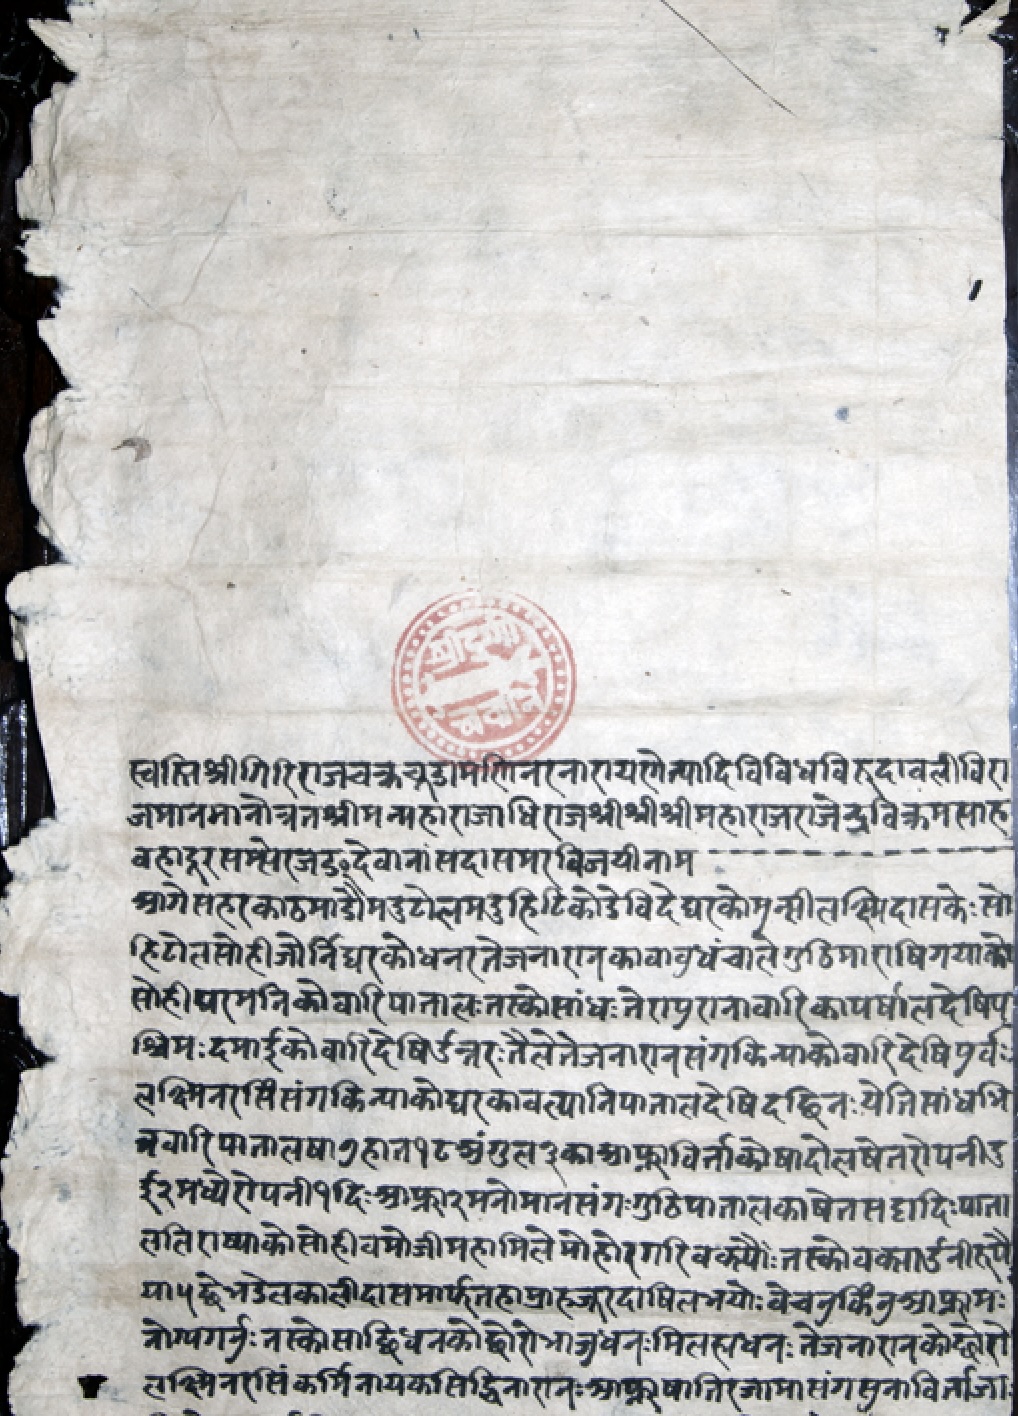 स्वस्ति श्रीगिरिराजचक्रचूडामणिनरनारायणेत्यादिविविधविरुदावलीविरा
जमानमानोन्नतश्रीमन्महाराजाधिराजश्रीश्रीश्रीमहाराजराजेन्द्रविक्रमसाह
वहादूरसम्सेरजङ्गदेवानां सदासमरविजयीनाम्
आगे सहरकाठमाडौ मडुटोलमडुहिटिकोडेविदेघरको मून्सी लक्ष्मिदासके: सो
हिटोलसोही जोर्निघरको धनर तेजनारानका वावुथं चाले गुठिमा राषिगयाको
सोही घरमनिको वारिपाताल: तस्को सांध: तेरा पुराना वारिका पर्षालदेषि प
श्चिम: दमाईको वारिदेषि उत्तर: तैले तेजनारानसंग किन्याको वारिदेषि पूर्व:
लक्ष्मिनरसिंसंग किन्याको घरका वल्यानिपातालदेषि दछिन: येति सांधभि
त्रवारिपातालषा ७ हात १८ अंगुल ३ का आफ्ना विर्ताको षादोलषेत रोपनी दु
ई २ मध्ये रोपनी १ दि: आफ्ना २ मनोमानसंग: गुठिपातालका षेत सट्टा दि: पाता
लति राष्याको सोही वमोजी महामिले मोहोर गरि वक्स्यौं: तस्को वक्साउनी रुपै
या ५ छे भडेल कालीदास मार्फत तहा म्राहजुर दाषिल भयो: वेचनु किंनु आफ्नाम:
नोग्य गर्नु: तस्को साछि धनको छोरो भाजुधन: मिलस्यधन: तेजनारानको छोरो
लक्ष्मिनरसिं कर्मिनायक सिद्धिनारान: